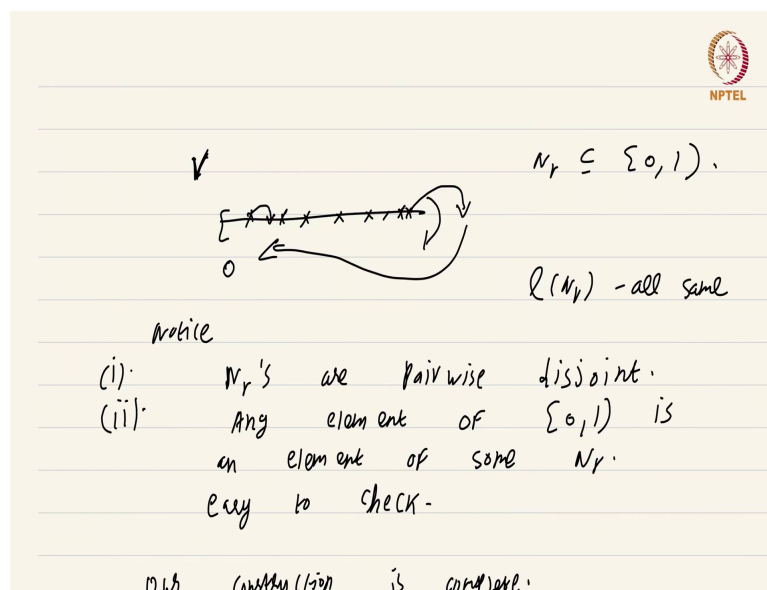 NPTEL
V
N_r ⊆ [0,1).
0
l(N_r) - all same
Notice
(i). N_r's are pairwise disjoint.
(ii). Any element of [0,1) is
an element of some N_r.
easy to check-
Our construction is complete.